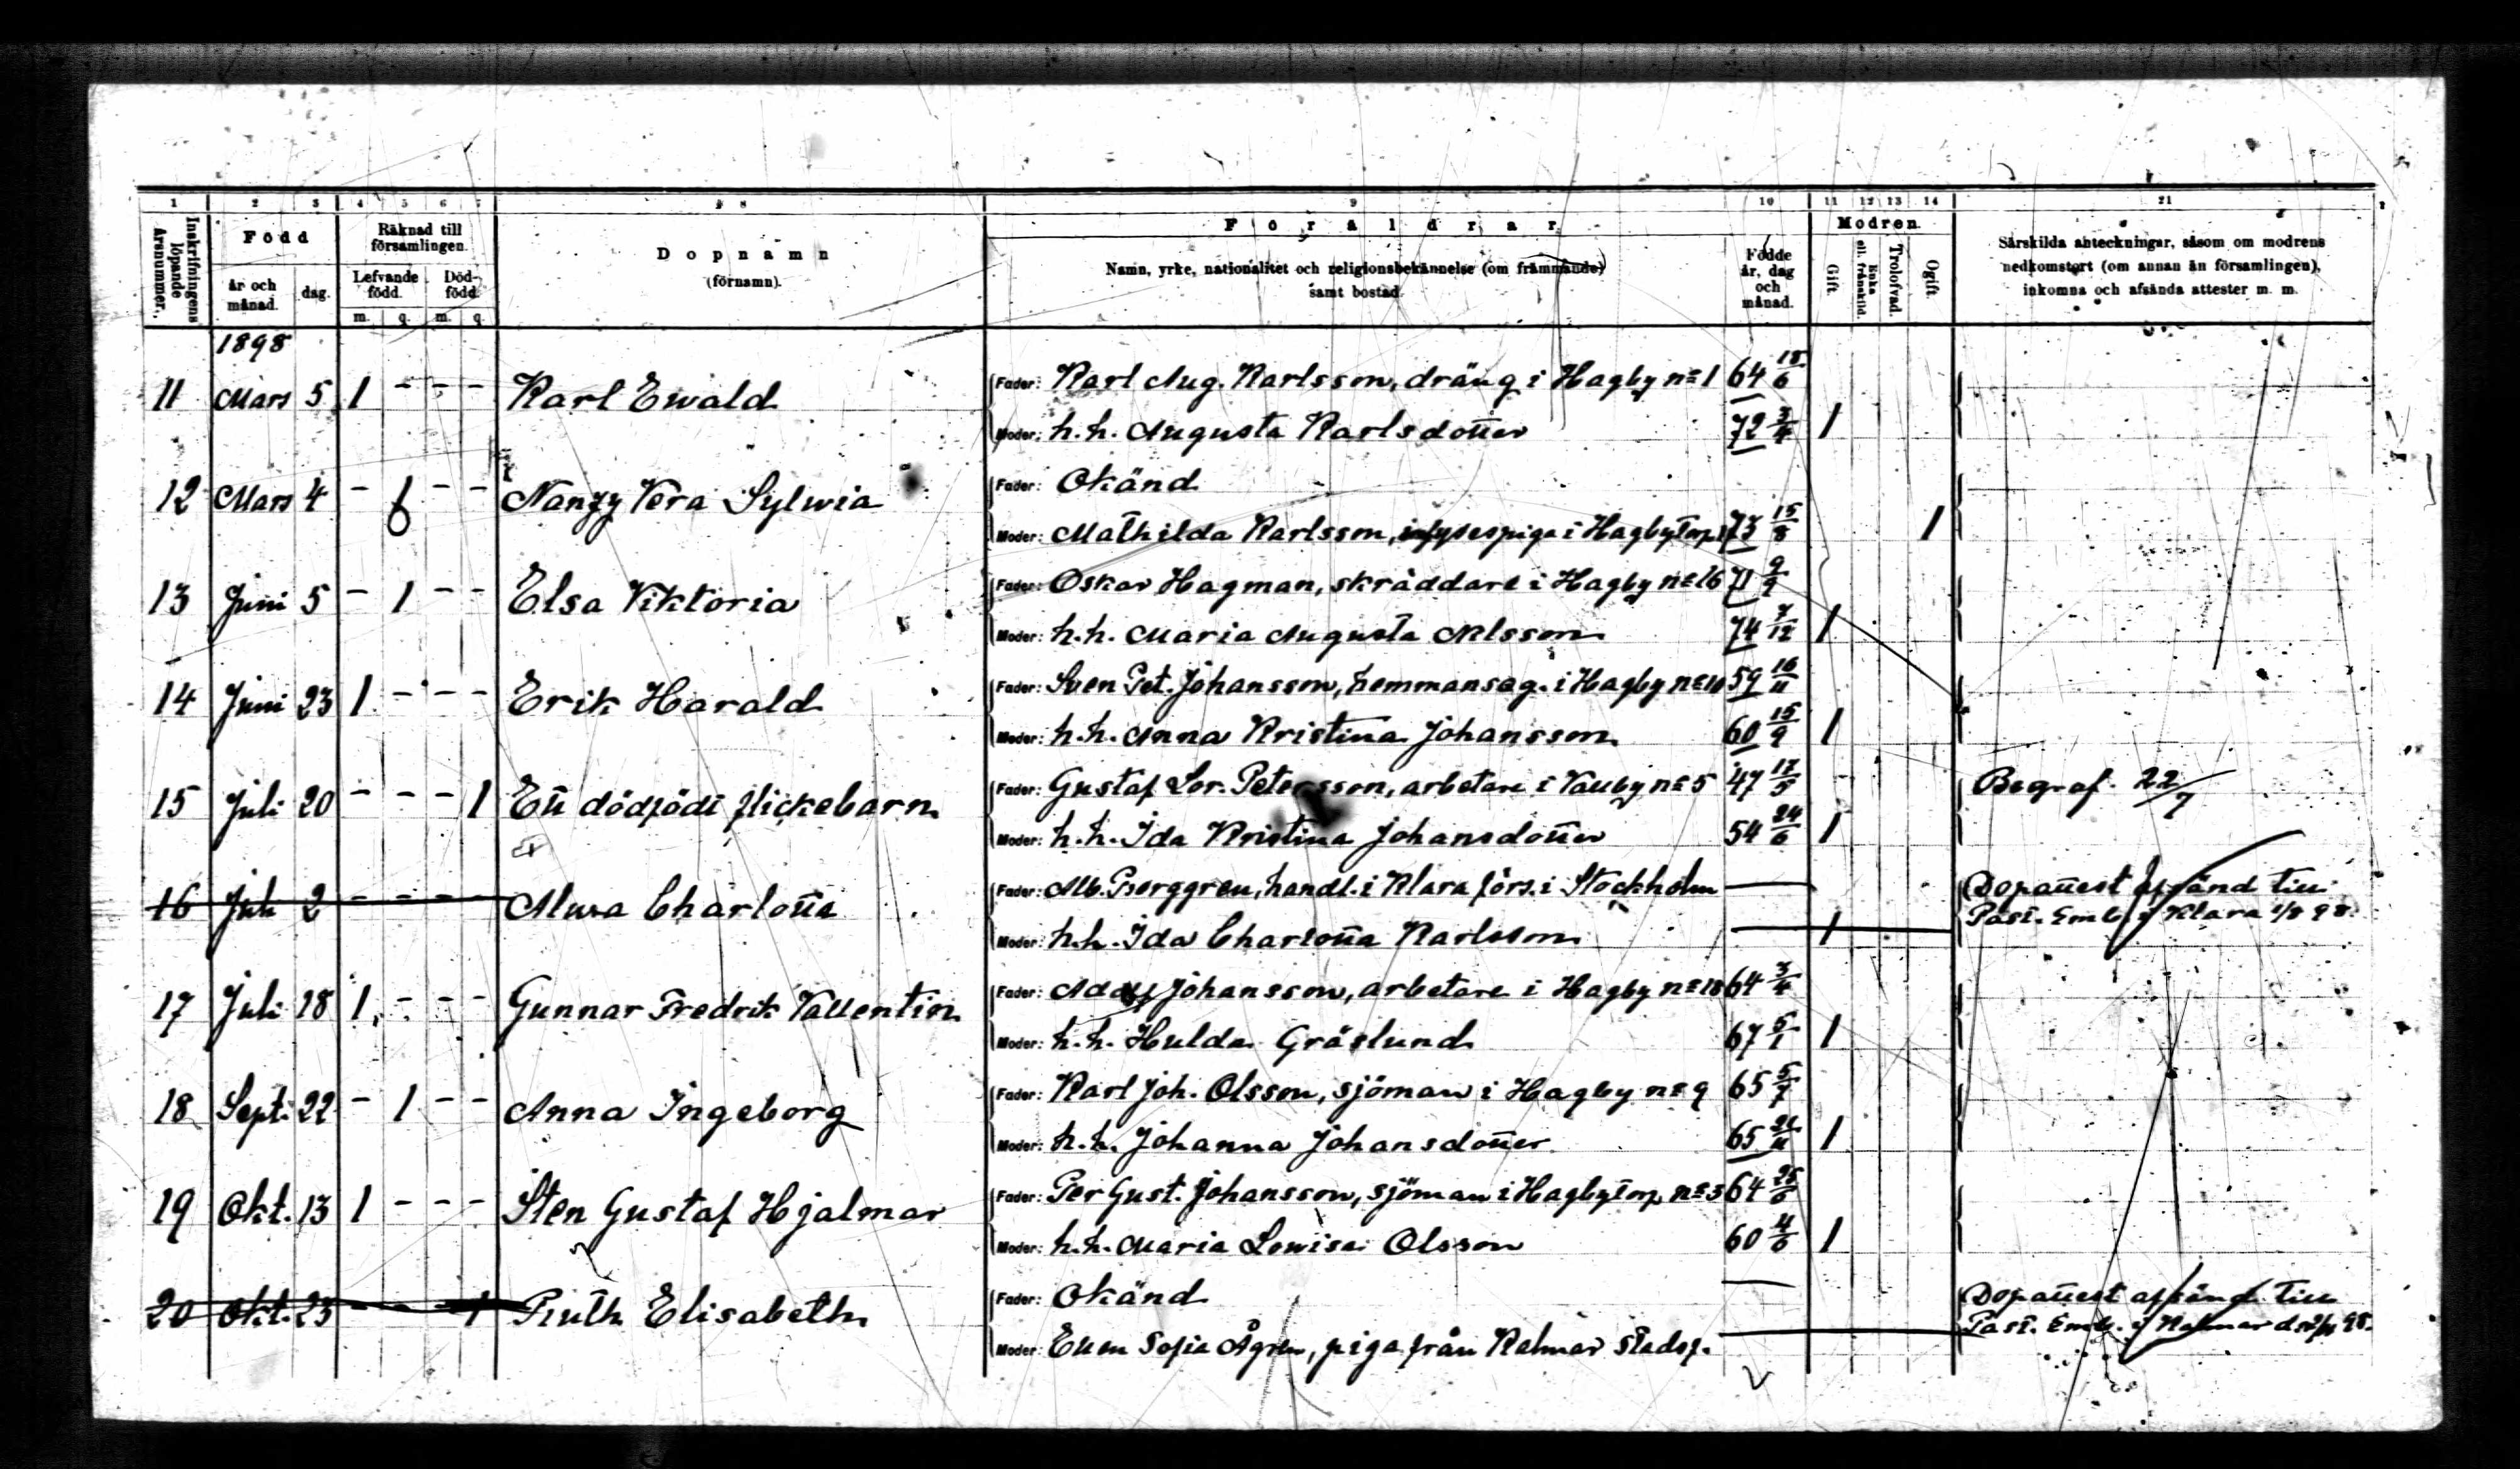 1 2 3 4 5 6 7 8 9 10 11 12 13 14 21
Inskrifningens löpande årsnummer.
Född
år och månad.
dag.
Räknad till församlingen.
Lefvande född.
Död-född.
m. q. m. q.
Dopnamn
(förnamn).
Föräldrar
Namn, yrke, nationalitet och religionsbekännelse (om främmande)
samt bostad.
Födde år, dag och månad.
Modren
Gift.
Enka ell. frånskild.
Trolofvad.
Ogift.
Särskilda anteckningar, såsom om modrens
nedkomstort (om annan än församlingen),
inkomna och afsända attester m. m.
1898
11 Mars 5 1 - - - Karl Ewald
Fader: Karl Aug. Karlsson, dräng i Hagby n:o 1 64 18/6
Moder: h.h. Augusta Karlsdotter 72 3/4 1
12 Mars 4 - 1 - - Nanzy Vera Sylwia
Fader: Okänd
Moder: Mathilda Karlsson, piga i Hagbytorp 73 15/8 1
13 Juni 5 - 1 - - Elsa Viktoria
Fader: Oskar Hagman, skräddare i Hagby n:o 16 71 9/9
Moder: h.h. Maria Augusta Nilsson 74 7/12 1
14 Juni 23 1 - - - Erik Harald
Fader: Sven Pet. Johansson, hemmansäg. i Hagby n:o 59 16/11
Moder: h.h. Anna Kristina Johansson 60 15/9 1
15 Juli 20 - - - 1 Ett dödfödt flickebarn
Fader: Gustaf Lor. Petersson, arbetare i Vallby n:o 5 47 17/5
Moder: h.h. Ida Kristina Johansdotter 54 24/6 1
Begraf. 22/7
16 Juli 2 - - - - Alwa Charlotta
Fader: Alb. Berggren, handl. i Klara förs. i Stockholm
Moder: h.h. Ida Charlotta Karlsson 1
Dopattest afsänd till
Past. Emb. i Klara 1/8 98.
17 Juli 18 1 - - - Gunnar Fredrik Vallentin
Fader: Adolf Johansson, arbetare i Hagby n:o 18 64 3/4
Moder: h.h. Hulda Gräslund 67 5/1 1
18 Sept. 22 - 1 - - Anna Ingeborg
Fader: Karl Joh. Olsson, sjöman i Hagby n:o 9 65 5/7
Moder: h.h. Johanna Johansdotter 65 1
19 Okt. 13 1 - - - Sten Gustaf Hjalmar
Fader: Per Gust. Johansson, sjöman i Hagbytorp n:o 3 64
Moder: h.h. Maria Lowisa Olsson 60 4/6 1
20 Okt. 23 - - - 1 Ruth Elisabeth
Fader: Okänd
Moder: Ellen Sofia Ågren, piga från Kalmar stadsf.
Dopattest afsänd till
Past. Emb. i Kalmar d. 98.